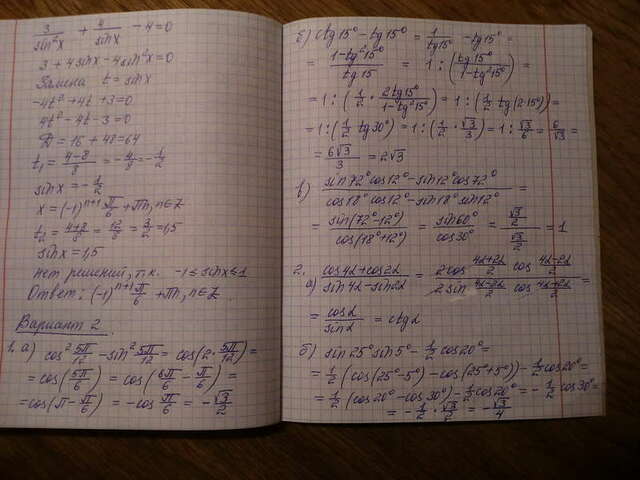 3/sin²x + 4/sinx - 4 = 0
3 + 4sinx - 4sin²x = 0
Замена t = sinx
-4t² + 4t + 3 = 0
4t² - 4t - 3 = 0
D = 16 + 48 = 64
t₁ = (4-8)/8 = -4/8 = -1/2
sinx = -1/2
x = (-1)ⁿ⁺¹ π/6 + πn, n∈Z
t₂ = (4+8)/8 = 12/8 = 3/2 = 1,5
sinx = 1,5
нет решений, т.к. -1 ≤ sinx ≤ 1
Ответ: (-1)ⁿ⁺¹ π/6 + πn, n∈Z.
Вариант 2.
1. а) cos² 5π/12 - sin² 5π/12 = cos(2· 5π/12) =
= cos(5π/6) = cos(6π/6 - π/6) =
= cos(π - π/6) = -cos π/6 = -√3/2
б) ctg 15° - tg 15° = 1/tg15° - tg 15° =
= (1-tg²15°)/tg 15 = 1 : (tg15°/(1-tg²15°)) =
= 1 : (1/2 · 2tg15°/(1-tg²15°)) = 1 : (1/2 tg(2·15°)) =
= 1 : (1/2 tg30°) = 1 : (1/2 · √3/3) = 1 : √3/6 = 6/√3 =
= 6√3/3 = 2√3
в) (sin72°cos12° - sin12°cos72°)/(cos18°cos12° - sin18°sin12°) =
= sin(72°-12°)/cos(18°+12°) = sin60°/cos30° = (√3/2)/(√3/2) = 1
2.
а) (cos4α+cos2α)/(sin4α-sin2α) = (2cos (4α+2α)/2 cos (4α-2α)/2)/(2sin (4α-2α)/2 cos (4α+2α)/2) =
= cosα/sinα = ctgα
б) sin25°sin5° - 1/2 cos20° =
= 1/2 (cos(25°-5°) - cos(25°+5°)) - 1/2 cos20° =
= 1/2 (cos20° - cos30°) - 1/2 cos20° = -1/2 cos30° =
= -1/2 · √3/2 = -√3/4